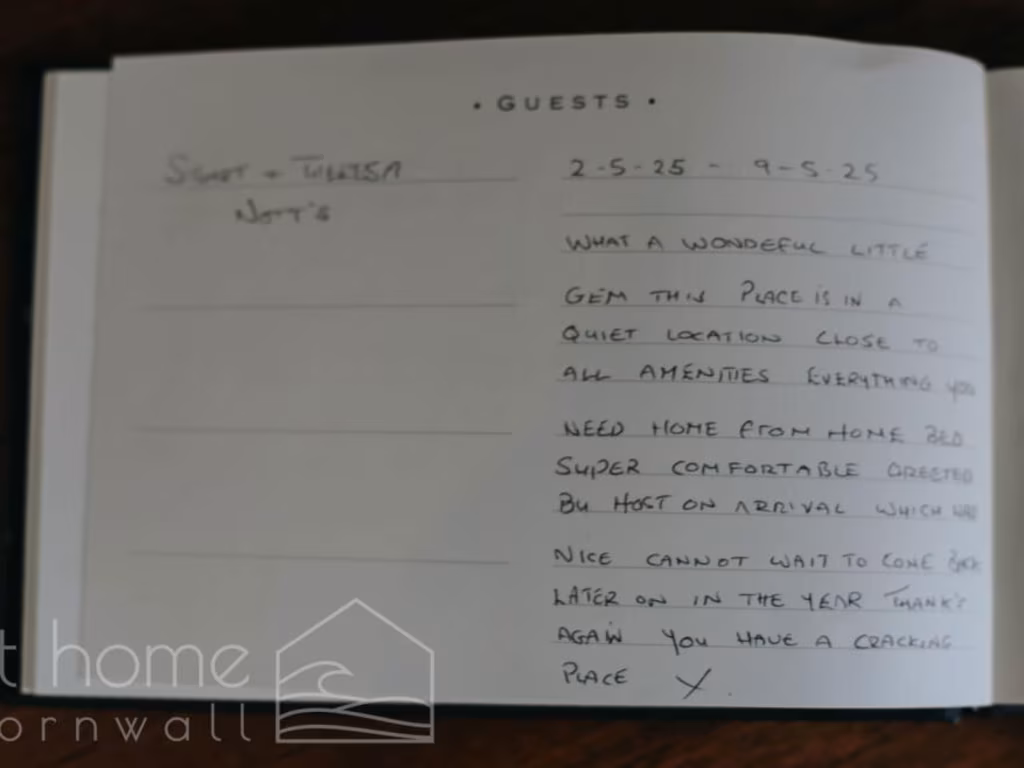 • GUESTS •
SCOTT +
NOTT'S
2-5-25 - 9-5-25
WHAT A WONDEFUL LITTLE
GEM THIS PLACE IS IN A
QUIET LOCATION CLOSE TO
ALL AMENITIES EVERYTHING YOU
NEED HOME FROM HOME BED
SUPER COMFORTABLE GREETED
BY HOST ON ARRIVAL WHICH WAS
NICE CANNOT WAIT TO COME BACK
LATER ON IN THE YEAR THANK'S
AGAIN YOU HAVE A CRACKING
PLACE X
t home
ornwall